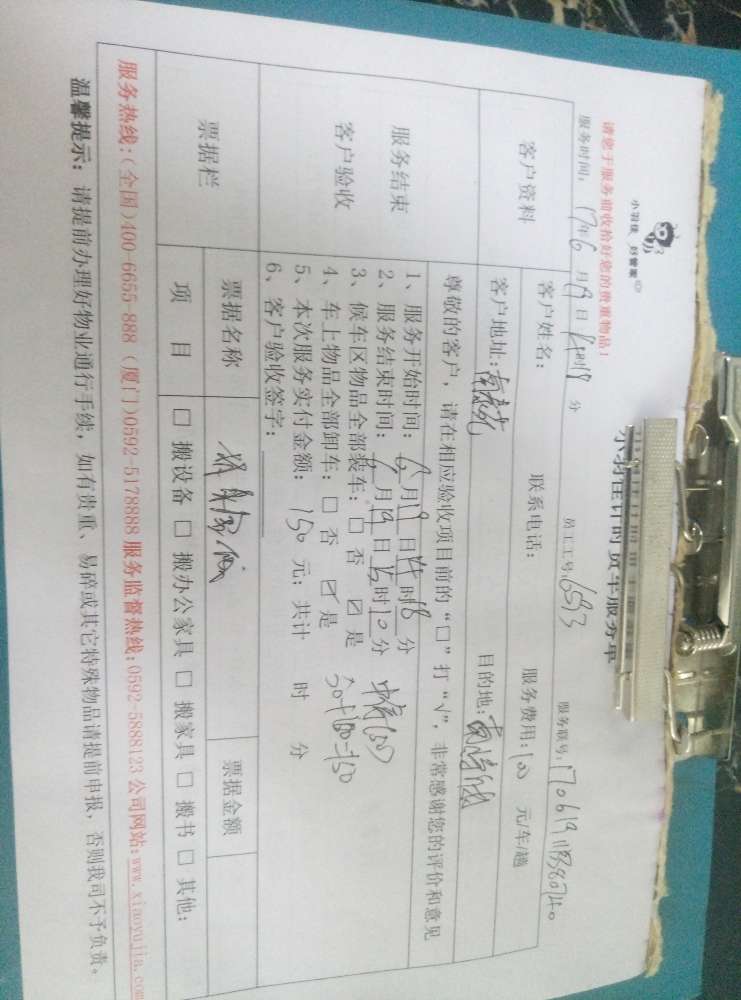 小羽佳 好管家
小羽佳计时货车服务单
请您于服务前收拾好您的贵重物品!
服务时间: 17年6月19日 时18分 员工工号:6593 服务联号:170619
客户资料
客户姓名: 联系电话: 服务费用:100 元/车/趟
客户地址: 目的地:
服务结束
客户验收
尊敬的客户,请在相应验收项目前的“□”打“√”,非常感谢您的评价和意见
1、服务开始时间:6月19日 时18分
2、服务结束时间:6月19日 时10分
3、候车区物品全部装车:□ 否 ☑ 是
4、车上物品全部卸车:□ 否 ☑ 是 50+100=150
5、本次服务实付金额:150 元;共计 时 分
6、客户验收签字:
票据栏
票据名称 票据金额
项 目 □ 搬设备 □ 搬办公家具 □ 搬家具 □ 搬书 □ 其他:
服务热线:(全国)400-6655-888 (厦门)0592-5178888 服务监督热线:0592-5888123 公司网站:www.xiaoyujia.com
温馨提示:请提前办理好物业通行手续,如有贵重、易碎或其它特殊物品请提前申报,否则我司不予负责。